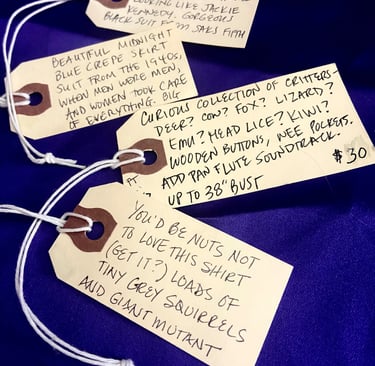 LOOKING LIKE JACKIE
KENNEDY. GORGEOUS
BLACK SUIT FROM SAKS FIFTH
BEAUTIFUL MIDNIGHT
BLUE CREPE SKIRT
SUIT FROM THE 1940s,
WHEN MEN WERE MEN,
AND WOMEN TOOK CARE
OF EVERYTHING. BIG
CURIOUS COLLECTION OF CRITTERS-
DEER? COW? FOX? LIZARD?
EMU? HEAD LICE? KIWI?
WOODEN BUTTONS, WEE POCKETS.
ADD PAN FLUTE SOUNDTRACK.
UP TO 38" BUST
$30
YOU'D BE NUTS NOT
TO LOVE THIS SHIRT
(GET IT?) LOADS OF
TINY GREY SQUIRRELS
AND GIANT MUTANT